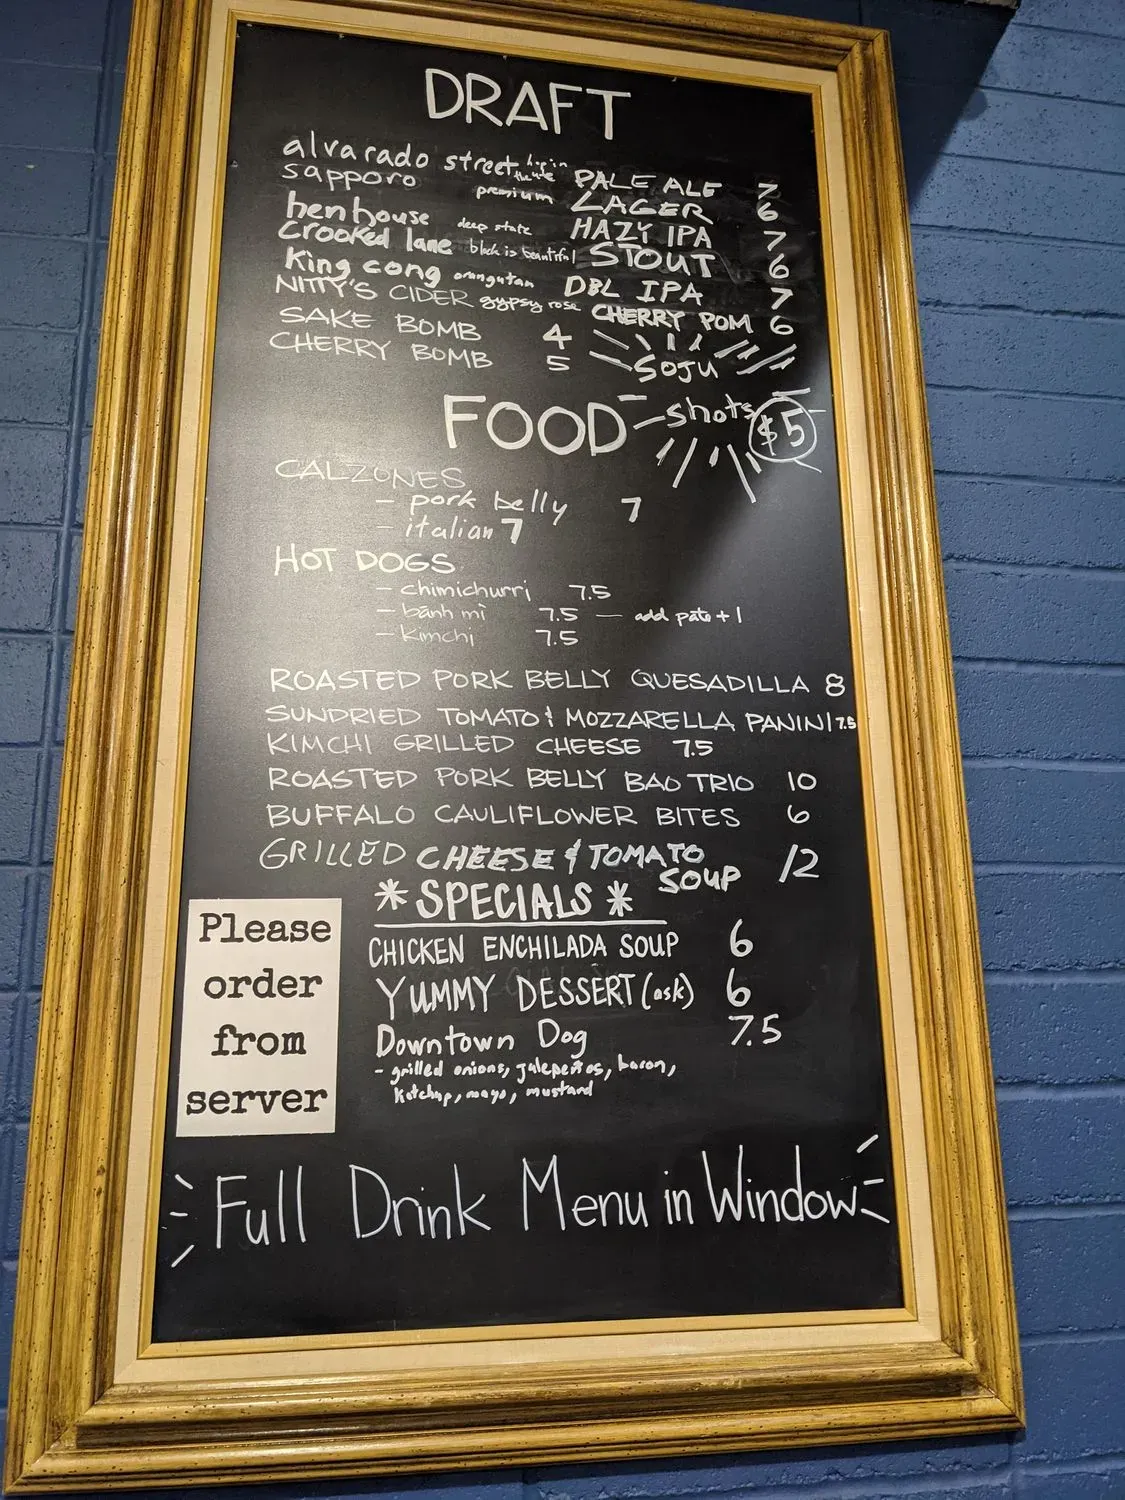 DRAFT
alvarado street hop in the line PALE ALE 7
sapporo premium LAGER 6
henhouse deep state HAZY IPA 7
Crooked lane black is beautiful STOUT 6
King cong orangutan DBL IPA 7
NITTY'S CIDER gypsy rose CHERRY POM 6
SAKE BOMB 4
CHERRY BOMB 5
SOJU
shots $5
FOOD
CALZONES
- pork belly 7
- italian 7
HOT DOGS
- chimichurri 7.5
- bánh mì 7.5 — add pate +1
- Kimchi 7.5
ROASTED PORK BELLY QUESADILLA 8
SUNDRIED TOMATO & MOZZARELLA PANINI 7.5
KIMCHI GRILLED CHEESE 7.5
ROASTED PORK BELLY BAO TRIO 10
BUFFALO CAULIFLOWER BITES 6
GRILLED CHEESE & TOMATO SOUP 12
* SPECIALS *
CHICKEN ENCHILADA SOUP 6
YUMMY DESSERT (ask) 6
Downtown Dog 7.5
- grilled onions, jalepeños, bacon,
ketchup, mayo, mustard
Please
order
from
server
Full Drink Menu in Window